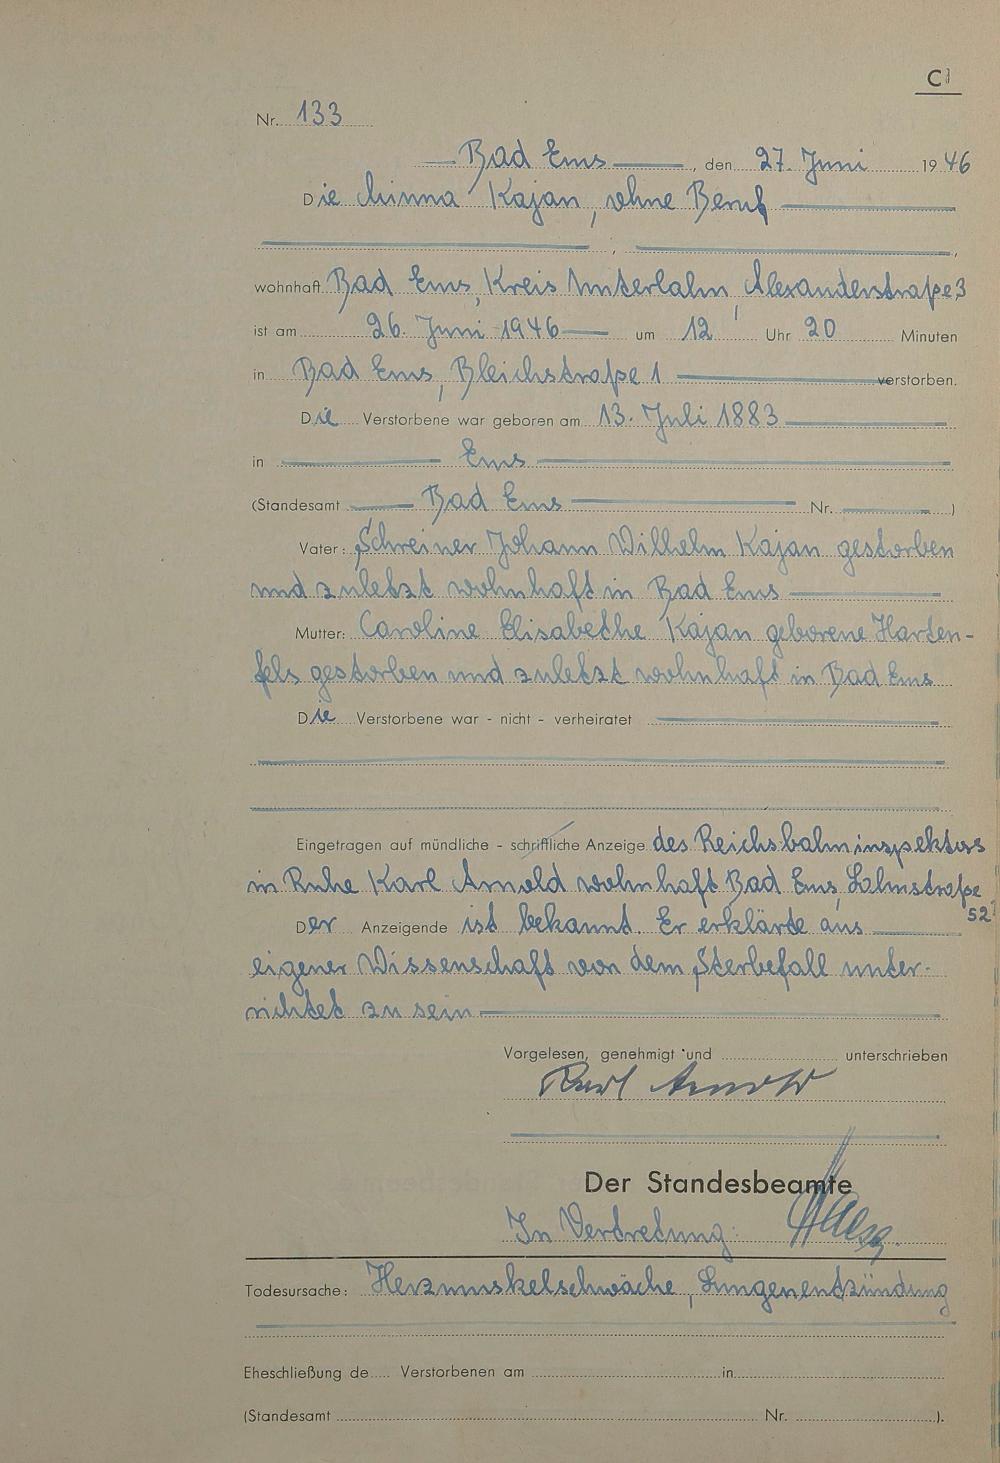 C
Nr. 133
Bad Ems, den 27. Juni 1946
Die Minna Kajan, ohne Beruf
,
wohnhaft Bad Ems, Kreis Unterlahn, Alexanderstraße 3
ist am 26. Juni 1946 um 12 Uhr 20 Minuten
in Bad Ems, Bleichstraße 1 verstorben.
Die Verstorbene war geboren am 13. Juli 1883
in Ems
(Standesamt Bad Ems Nr. )
Vater: Schreiner Johann Wilhelm Kajan gestorben
und zuletzt wohnhaft in Bad Ems
Mutter: Caroline Elisabethe Kajan geborene Harten-
fels gestorben und zuletzt wohnhaft in Bad Ems
Die Verstorbene war - nicht - verheiratet
Eingetragen auf mündliche - schriftliche Anzeige des Reichsbahninspektors
in Ruhe Karl Arnold wohnhaft Bad Ems, Lahnstraße
52
Der Anzeigende ist bekannt. Er erklärte aus
eigener Wissenschaft von dem Sterbefall unter-
richtet zu sein
Vorgelesen, genehmigt und unterschrieben
Karl Arnold
Der Standesbeamte
In Vertretung:
Todesursache: Herzmuskelschwäche, Lungenentzündung
Eheschließung de Verstorbenen am in
(Standesamt Nr. ).